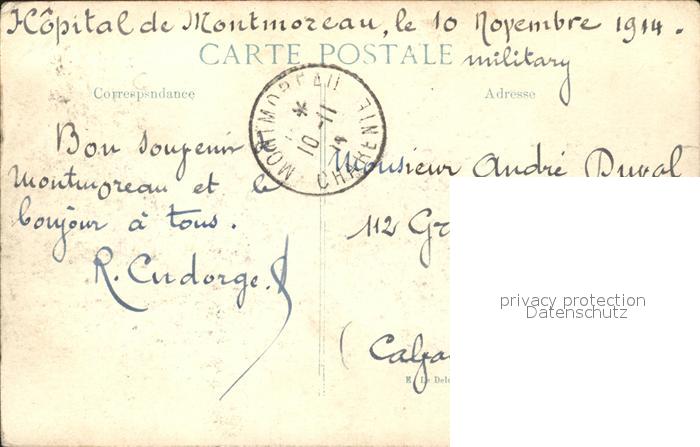 Hôpital de Montmoreau, le 10 Novembre 1914.
CARTE POSTALE
military
Correspondance
Adresse
MONTMOREAU
* 
10 - 11
14
CHARENTE
Bon souvenir
Montmoreau et le
bonjour à tous.
Monsieur André Duval
112 Gr
privacy protection
Datenschutz
E. Le Dele